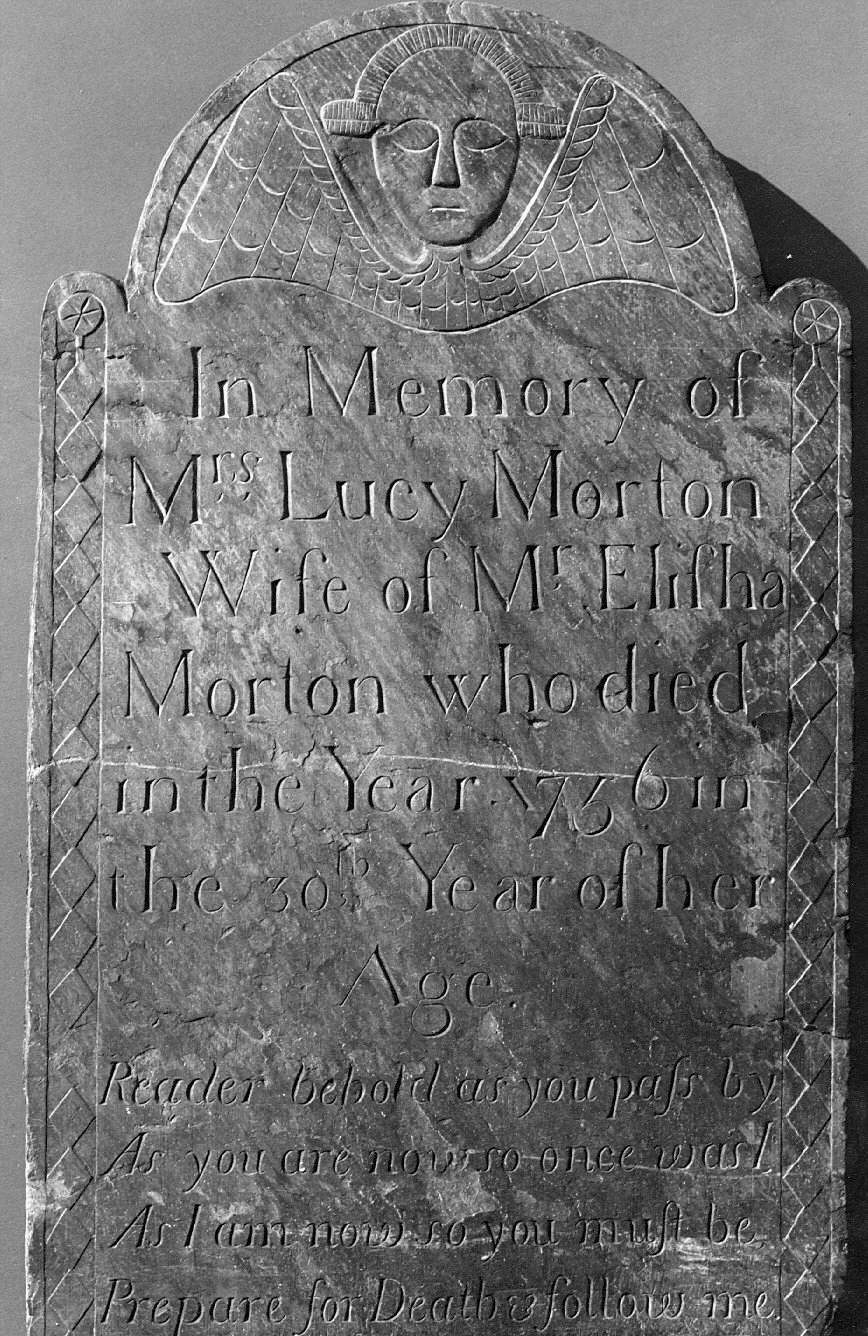 In Memory of
Mrs Lucy Morton
Wife of Mr Eliſha
Morton who died
in the Year 1736 in
the 30th Year of her
Age.
Reader behold as you paſs by
As you are now so once was I
As I am now so you muſt be
Prepare for Death & follow me.